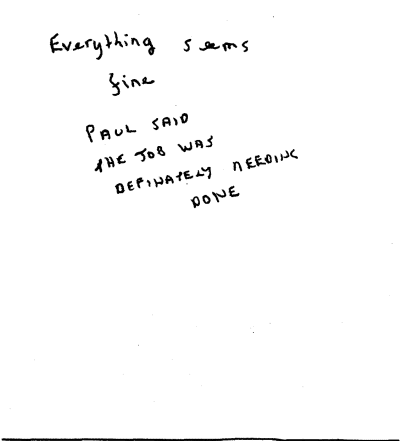 Everything seems
fine
PAUL SAID
THE JOB WAS
DEFINATELY NEEDING
DONE